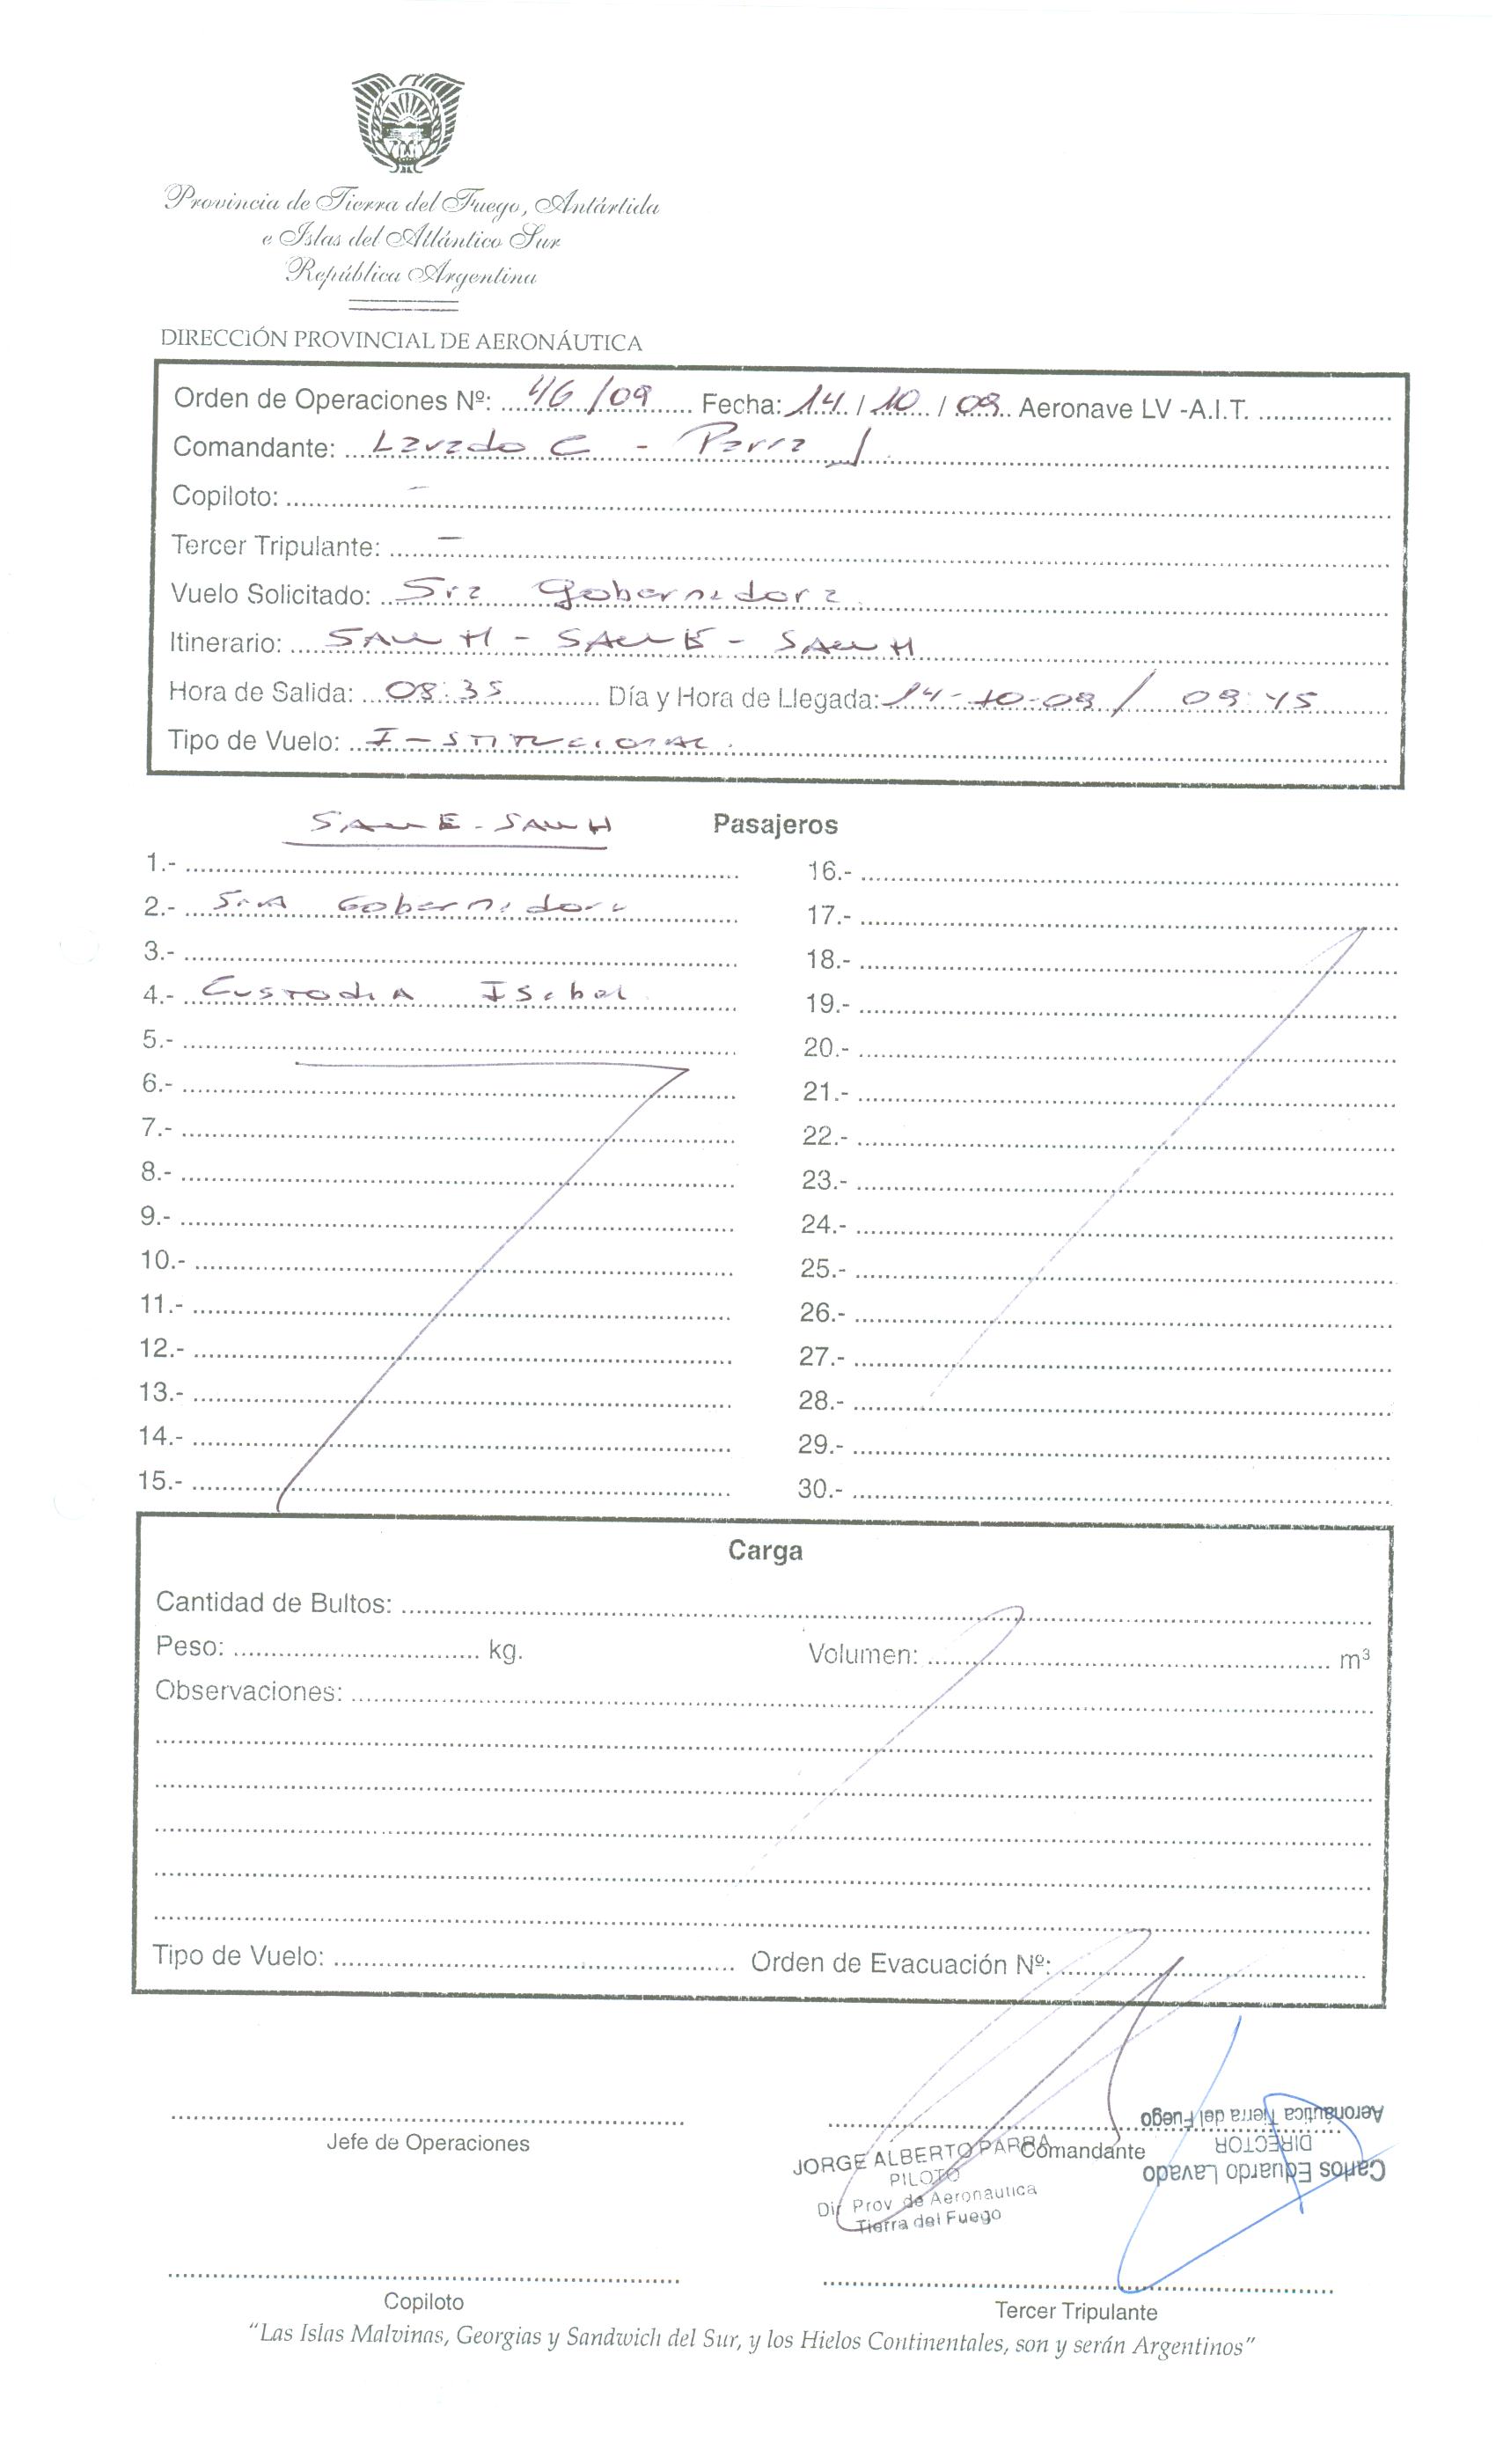 Provincia de Tierra del Fuego, Antártida
e Islas del Atlántico Sur
República Argentina
DIRECCIÓN PROVINCIAL DE AERONÁUTICA
Orden de Operaciones Nº: 46/09 Fecha: 14 / 10 / 09 Aeronave LV -A.I.T.
Comandante: Lavado C - Parra J
Copiloto: -
Tercer Tripulante: -
Vuelo Solicitado: Sra Gobernadora
Itinerario: SAWH - SAWE - SAWH
Hora de Salida: 08:35 Día y Hora de Llegada: 14-10-09 / 09:45
Tipo de Vuelo: Institucional
SAWE - SAWH Pasajeros
1.- 16.-
2.- SrA Gobernadora 17.-
3.- 18.-
4.- Custodia Isabel 19.-
5.- 20.-
6.- 21.-
7.- 22.-
8.- 23.-
9.- 24.-
10.- 25.-
11.- 26.-
12.- 27.-
13.- 28.-
14.- 29.-
15.- 30.-
Carga
Cantidad de Bultos:
Peso: kg. Volumen: m³
Observaciones:
Tipo de Vuelo: Orden de Evacuación Nº:
Jefe de Operaciones
Comandante
JORGE ALBERTO PARRA
PILOTO
Dir Prov de Aeronautica
Tierra del Fuego
Carlos Eduardo Lavado
DIRECTOR
Aeronáutica Tierra del Fuego
Copiloto
Tercer Tripulante
"Las Islas Malvinas, Georgias y Sandwich del Sur, y los Hielos Continentales, son y serán Argentinos"